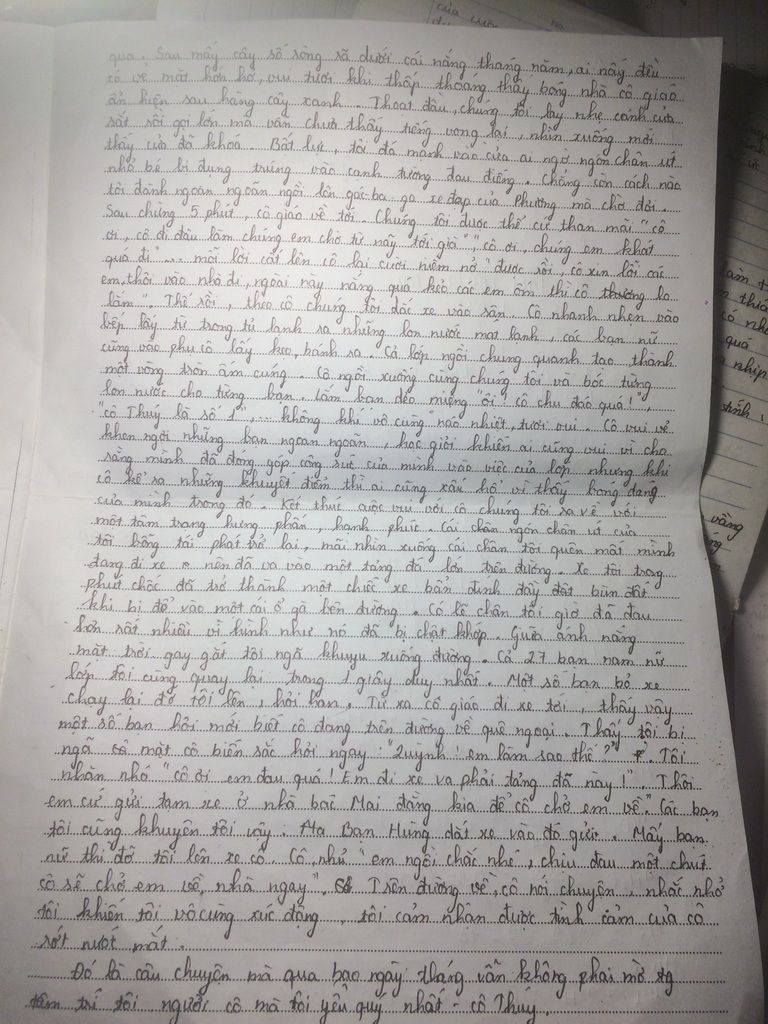 của cuộc
qua. Sau mấy cây số ròng rã dưới cái nắng tháng năm, ai nấy đều
có vẻ mồ hôn hở, vui tươi khi thấp thoáng thấy bóng nhà cô giáo
ẩn hiện sau hàng cây xanh. Thoạt đầu, chúng tôi lay nhẹ cánh cửa
sắt rồi gọi lớn mà vẫn chưa thấy tiếng vọng lại, nhìn xuống mới
thấy cửa đã khoá. Bất lực, tôi đá mạnh vào cửa ai ngờ ngón chân út
nhỏ bé bị đụng trúng vào cạnh tường đau điếng. Chẳng còn cách nào
tôi đành ngoan ngoãn ngồi lên gác-ba-ga xe đạp của Phương mà chờ đợi.
Sau chừng 5 phút, cô giáo về tới. Chúng tôi được thế cứ than mãi "cô
ơi, cô đi đâu làm chúng em chờ từ nãy tới giờ", "cô ơi, chúng em khát
quá đi"... mỗi lời cất lên cô lại cười niềm nở "được rồi, cô xin lỗi các
em, thôi vào nhà đi, ngoài này nắng quá kẻo các em ốm thì cô thương lo
lắm". Thế rồi, theo cô chúng tôi dắc xe vào sân. Cô nhanh nhẹn vào
bếp lấy từ trong tủ lạnh ra những lon nước mát lạnh, các bạn nữ
cũng vào phụ cô lấy kẹo, bánh ra. Cả lớp ngồi chung quanh tạo thành
một vòng tròn ấm cúng. Cô ngồi xuống cùng chúng tôi và bóc từng
lon nước cho từng bạn. Lắm bạn dẻo miệng "ôi! cô chu đáo quá!",
"cô Thuý là số 1",... không khí vô cùng náo nhiệt, tươi vui. Cô vui vẻ
khen ngợi những bạn ngoan ngoãn, học giỏi khiến ai cũng vui vì cho
rằng mình đã đóng góp công sức của mình vào việc của lớp nhưng khi
cô kể ra những khuyết điểm thì ai cũng xấu hổ vì thấy bóng dáng
của mình trong đó. Kết thúc cuộc vui với cô chúng tôi ra về với
một tâm trạng hưng phấn, hạnh phúc. Cái chân ngón chân út của
tôi bỗng tái phát trở lại, mãi nhìn xuống cái chân tôi quên mất mình
đang đi xe nên đã va vào một tảng đá lớn trên đường. Xe tôi trong
phút chốc đã trở thành một chiếc xe bẩn dính đầy đất bùn đất
khi bị đổ vào một cái ổ gà bên đường. Có lẽ chân tôi giờ đã đau
hơn rất nhiều vì hình như nó đã bị chật khớp. Giữa ánh nắng
mặt trời gay gắt tôi ngã khuỵu xuống đường. Cả 27 bạn nam nữ
lớp tôi cùng quay lại trong 1 giây duy nhất. Một số bạn bỏ xe
chạy lại đỡ tôi lên, hỏi han. Từ xa cô giáo đi xe tới, thấy vậy
một số bạn hỏi mới biết cô đang trên đường về quê ngoại. Thấy tôi bị
ngã mặt cô biến sắc hỏi ngay: "Quỳnh! em làm sao thế?". Tôi
nhăn nhó "cô ơi em đau quá! Em đi xe va phải tảng đá này!". Thôi
em cứ gửi tạm xe ở nhà bác Mai đằng kia để cô chở em về." Các bạn
tôi cũng khuyên tôi vậy. Bạn Hùng dắt xe vào đó gửi. Mấy bạn
nữ thì đỡ tôi lên xe cô. Cô nhủ "em ngồi chắc nhé, chịu đau một chút
cô sẽ chở em về nhà ngay". Trên đường về, cô nói chuyện, nhắc nhở
tôi khiến tôi vô cùng xúc động, tôi cảm nhận được tình cảm của cô
rớt nướt mắt.
Đó là câu chuyện mà qua bao ngày tháng vẫn không phai mờ tg
tâm trí tôi người cô mà tôi yêu quý nhất - cô Thuý.
quá
nhịp
vàng